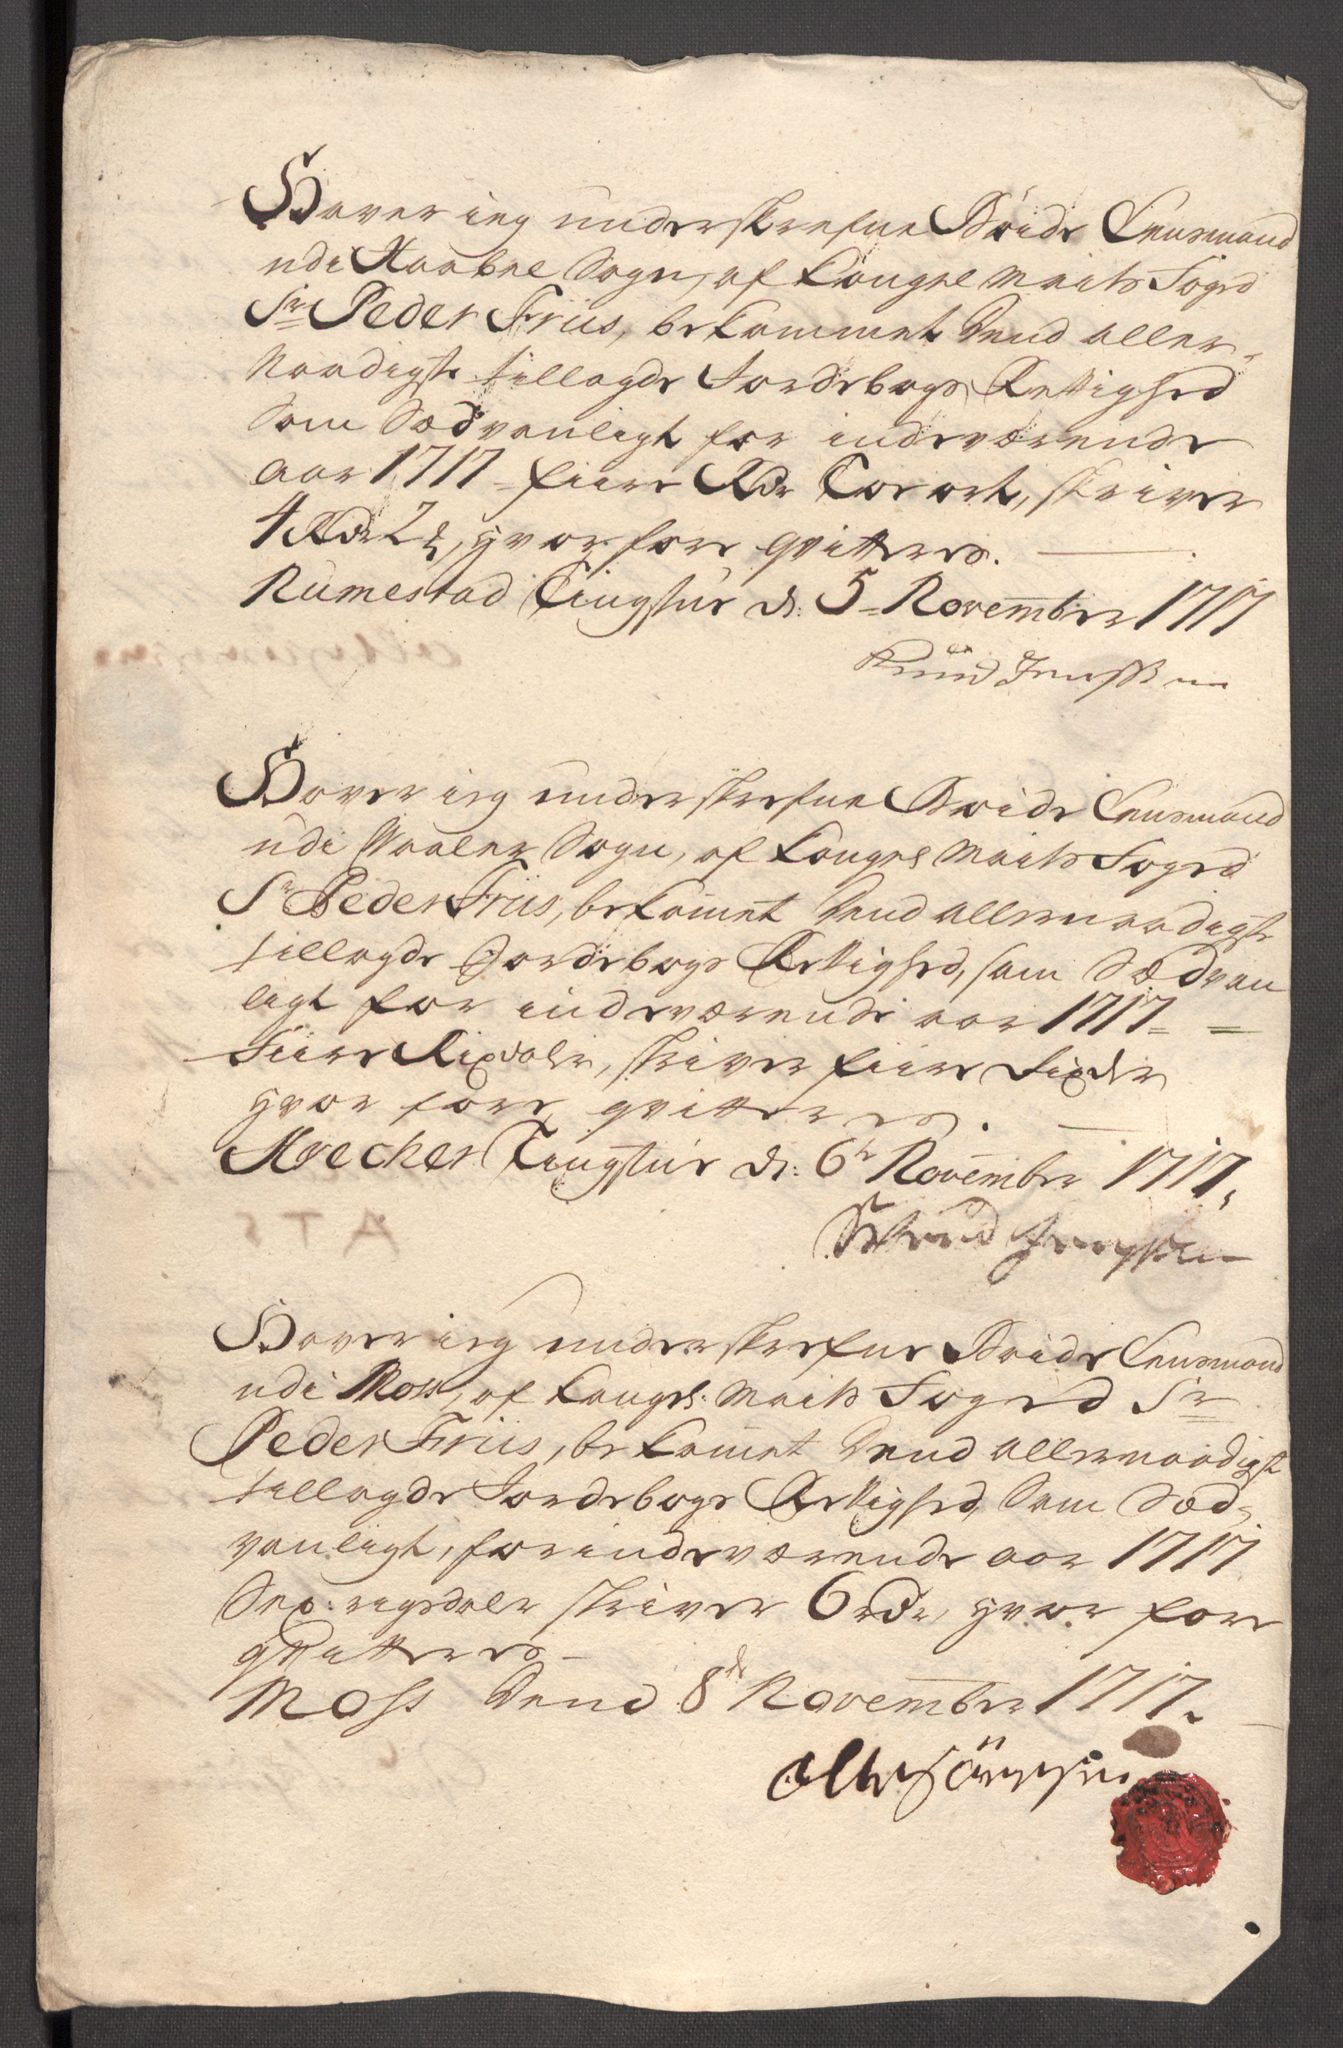 Hafver ieg underskrefne Bøide Lensmand
udi Haabøe Sogn, af Kongel Maits Foged
Sr Peder Friis, bekommet dend aller-
naadigste tillagde Jordebogs Rettighed
som Sædvanligt for indeværende
aar 1717 - fiire Rdr Toe ort, skriver
4 Rdr 2 , hvor fore qvitteres.
Rumestad Tingstue d: 5 November 1717
Knud Jenssen
Hafver ieg underskrefne Bøide Lensmand
udi Vaaler Sogn, af Kongel Maits Foged
Sr Peder Friis, bekomet dend allernaadigste
tillagde Jordebogs Rettighed, som Sædvan
ligt for indeværende aar 1717 -
Fiire Rixdaler, skriver fiire Rixdr
hvor fore qvitteres.
Tingstue d: 6te November 1717,
Hafver ieg underskrefne Bøide Lensmand
udi Moss, af Kongel: Maits Foged Sr
Peder Friis, bekomet dend allernaadigste
tillagde Jordebogs Rettighed, Som Sæd-
vanligt, for indeværende aar 1717
Sex rigsdaler skriver 6 rdr, hvor fore
qvitteres
Moss dend 8de November 1717.